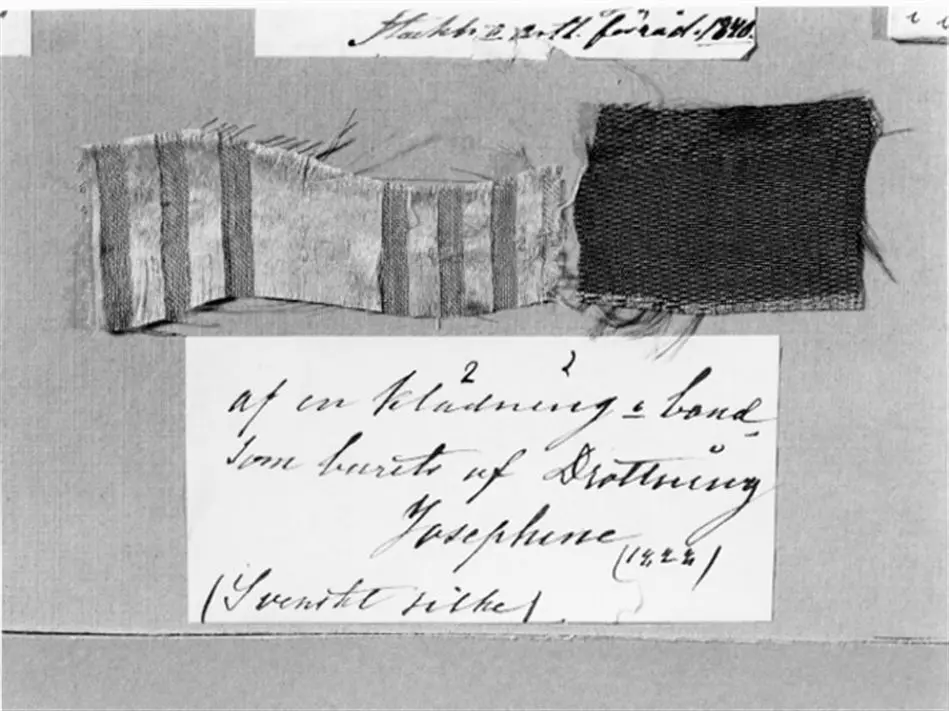 förråd. 1840.
af en klädning & band
som burits af Drottning
Josephine
(1822)
(Svenskt silke)